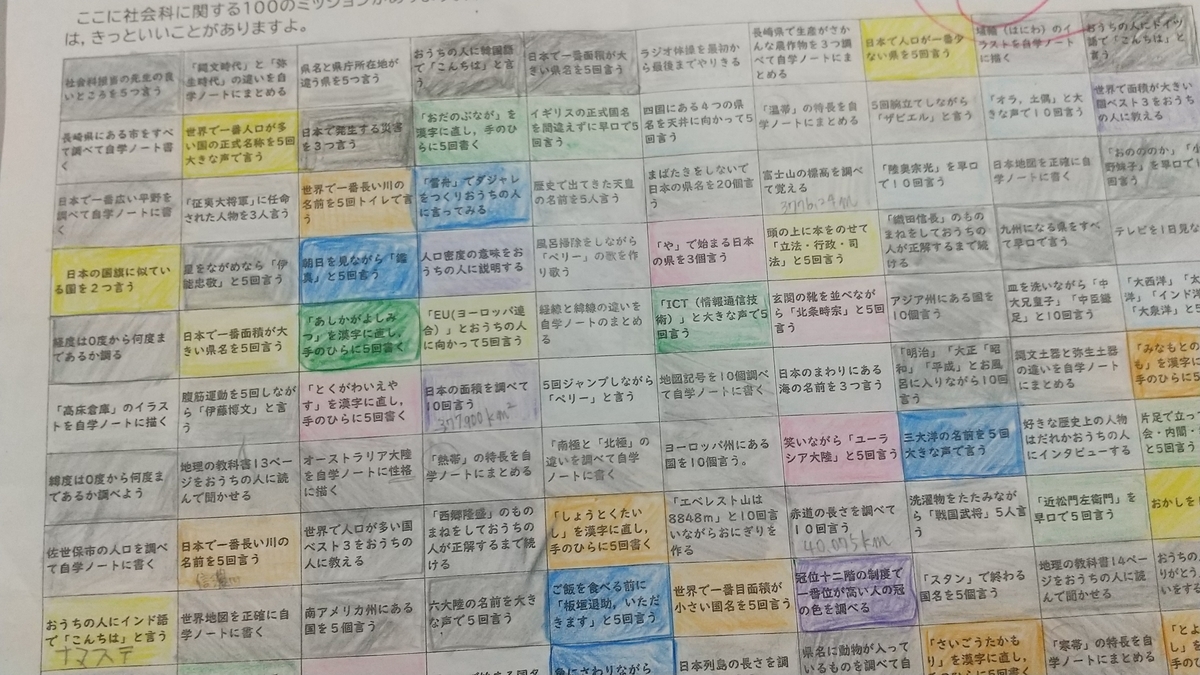 ここに社会科に関する100のミッションがあり
は,きっといいことがありますよ。
社会科担当の先生の良
いところを5つ言う
「縄文時代」と「弥
生時代」の違いを自
学ノートにまとめる
県名と県庁所在地が
違う県を5つ言う
おうちの人に韓国語
で「こんちは」と言
う
日本で一番面積が大
きい県名を5回言う
ラジオ体操を最初か
ら最後までやりきる
長崎県で生産がさか
んな農作物を3つ調
べて自学ノートにま
とめる
日本で人口が一番少
ない県を5回言う
埴輪(はにわ)のイ
ラストを自学ノート
に描く
おうちの人にドイツ
語で「こんちは」と
言う
長崎県にある市をすべ
て調べて自学ノート書
く
世界で一番人口が多
い国の正式名称を5回
大きな声で言う
日本で発生する災害
を3つ言う
「おだのぶなが」を
漢字に直し,手のひ
らに5回書く
イギリスの正式国名
を間違えずに早口で5
回言う
四国にある4つの県
名を天井に向かって5
回言う
「温帯」の特長を自
学ノートにまとめる
5回腕立てしながら
「ザビエル」と言う
「オラ,土偶」と大
きな声で10回言う
世界で面積が大きい
国ベスト3をおうち
の人に教える
日本で一番広い平野を
調べて自学ノートに書
く
「征夷大将軍」に任命
された人物を3人言う
世界で一番長い川の
名前を5回トイレで言
う
「雪舟」でダジャレ
をつくりおうちの人
に言ってみる
歴史で出てきた天皇
の名前を5人言う
まばたきをしないで
日本の県名を20個言
う
富士山の標高を調べ
て覚える
3776.24m
「陸奥宗光」を早口
で10回言う
日本地図を正確に自
学ノートに書く
「おのののか」「小
野妹子」を早口で
回言う
日本の国旗に似てい
る国を2つ言う
星をながめなら「伊
能忠敬」と5回言う
朝日を見ながら「鑑
真」と5回言う
人口密度の意味をお
うちの人に説明する
風呂掃除をしながら
「ペリー」の歌を作
り歌う
「や」で始まる日本
の県を3個言う
頭の上に本をのせて
「立法・行政・司
法」と5回言う
「織田信長」のもの
まねをしておうちの
人が正解するまで続
ける
九州になる県をすべ
て早口で言う
テレビを1日見な
経度は0度から何度ま
であるか調る
日本で一番面積が大
きい県名を5回言う
「あしかがよしみ
つ」を漢字に直し,
手のひらに5回書く
「EU(ヨーロッパ連
合)」とおうちの人
に向かって5回言う
経線と緯線の違いを
自学ノートのまとめ
る
「ICT(情報通信技
術)」と大きな声で5
回言う
玄関の靴を並べなが
ら「北条時宗」と5回
言う
アジア州にある国を
10個言う
皿を洗いながら「中
大兄皇子」「中臣鎌
足」と10回言う
「大西洋」「太
洋」「インド洋
「大泉洋」と5
「高床倉庫」のイラス
トを自学ノートに描く
腹筋運動を5回しなが
ら「伊藤博文」と言
う
「とくがわいえや
す」を漢字に直し,
手のひらに5回書く
日本の面積を調べて
10回言う
377900km²
5回ジャンプしながら
「ペリー」と言う
地図記号を10個調べ
て自学ノートに書く
日本のまわりにある
海の名前を3つ言う
「明治」「大正「昭
和」「平成」とお風
呂に入りながら10回
言う
縄文土器と弥生土器
の違いを自学ノート
にまとめる
「みなもとの
も」を漢字に
手のひらに5
緯度は0度から何度ま
であるか調べよう
地理の教科書13ペー
ジをおうちの人に読
んで聞かせる
オーストラリア大陸
を自学ノートに性格
に描く
「熱帯」の特長を自
学ノートにまとめる
「南極と「北極」の
違いを調べて自学
ノートに書く
ヨーロッパ州にある
国を10個言う。
笑いながら「ユーラ
シア大陸」と5回言う
三大洋の名前を5回
大きな声で言う
好きな歴史上の人物
はだれかおうちの人
にインタビューする
片足で立っ
会・内閣・
と5回言う
佐世保市の人口を調べ
て自学ノートに書く
日本で一番長い川の
名前を5回言う
世界で人口が多い国
ベスト3をおうちの
人に教える
「西郷隆盛」のもの
まねをしておうちの
人が正解するまで続
ける
「しょうとくたい
し」を漢字に直し,
手のひらに5回書く
「エベレスト山は
8848m」と10回言
いながらおにぎりを
作る
赤道の長さを調べて
10回言う
40,075km
洗濯物をたたみなが
ら「戦国武将」5人言
う
「近松門左衛門」を
早口で5回言う
おかしを
おうちの人にインド語
で「こんちは」と言う
ナマステ
世界地図を正確に自
学ノートに書く
南アメリカ州にある
国を5個言う
六大陸の名前を大き
な声で5回言う
ご飯を食べる前に
「板垣退助,いただ
きます」と5回言う
世界で一番目面積が
小さい国名を5回言う
冠位十二階の制度で
一番位が高い人の冠
の色を調べる
「スタン」で終わる
国名を5個言う
地理の教科書14ペー
ジをおうちの人に読
んで聞かせる
おうちの
りがとう
いをす
象にさわりながら
日本列島の長さを調
県名に動物が入って
いるものを調べて自
「さいごうたかも
り」を漢字に直し,
手のひらに5回書く
「寒帯」の特長を自
学ノートにまとめる
「とよ
し」を
手のひ